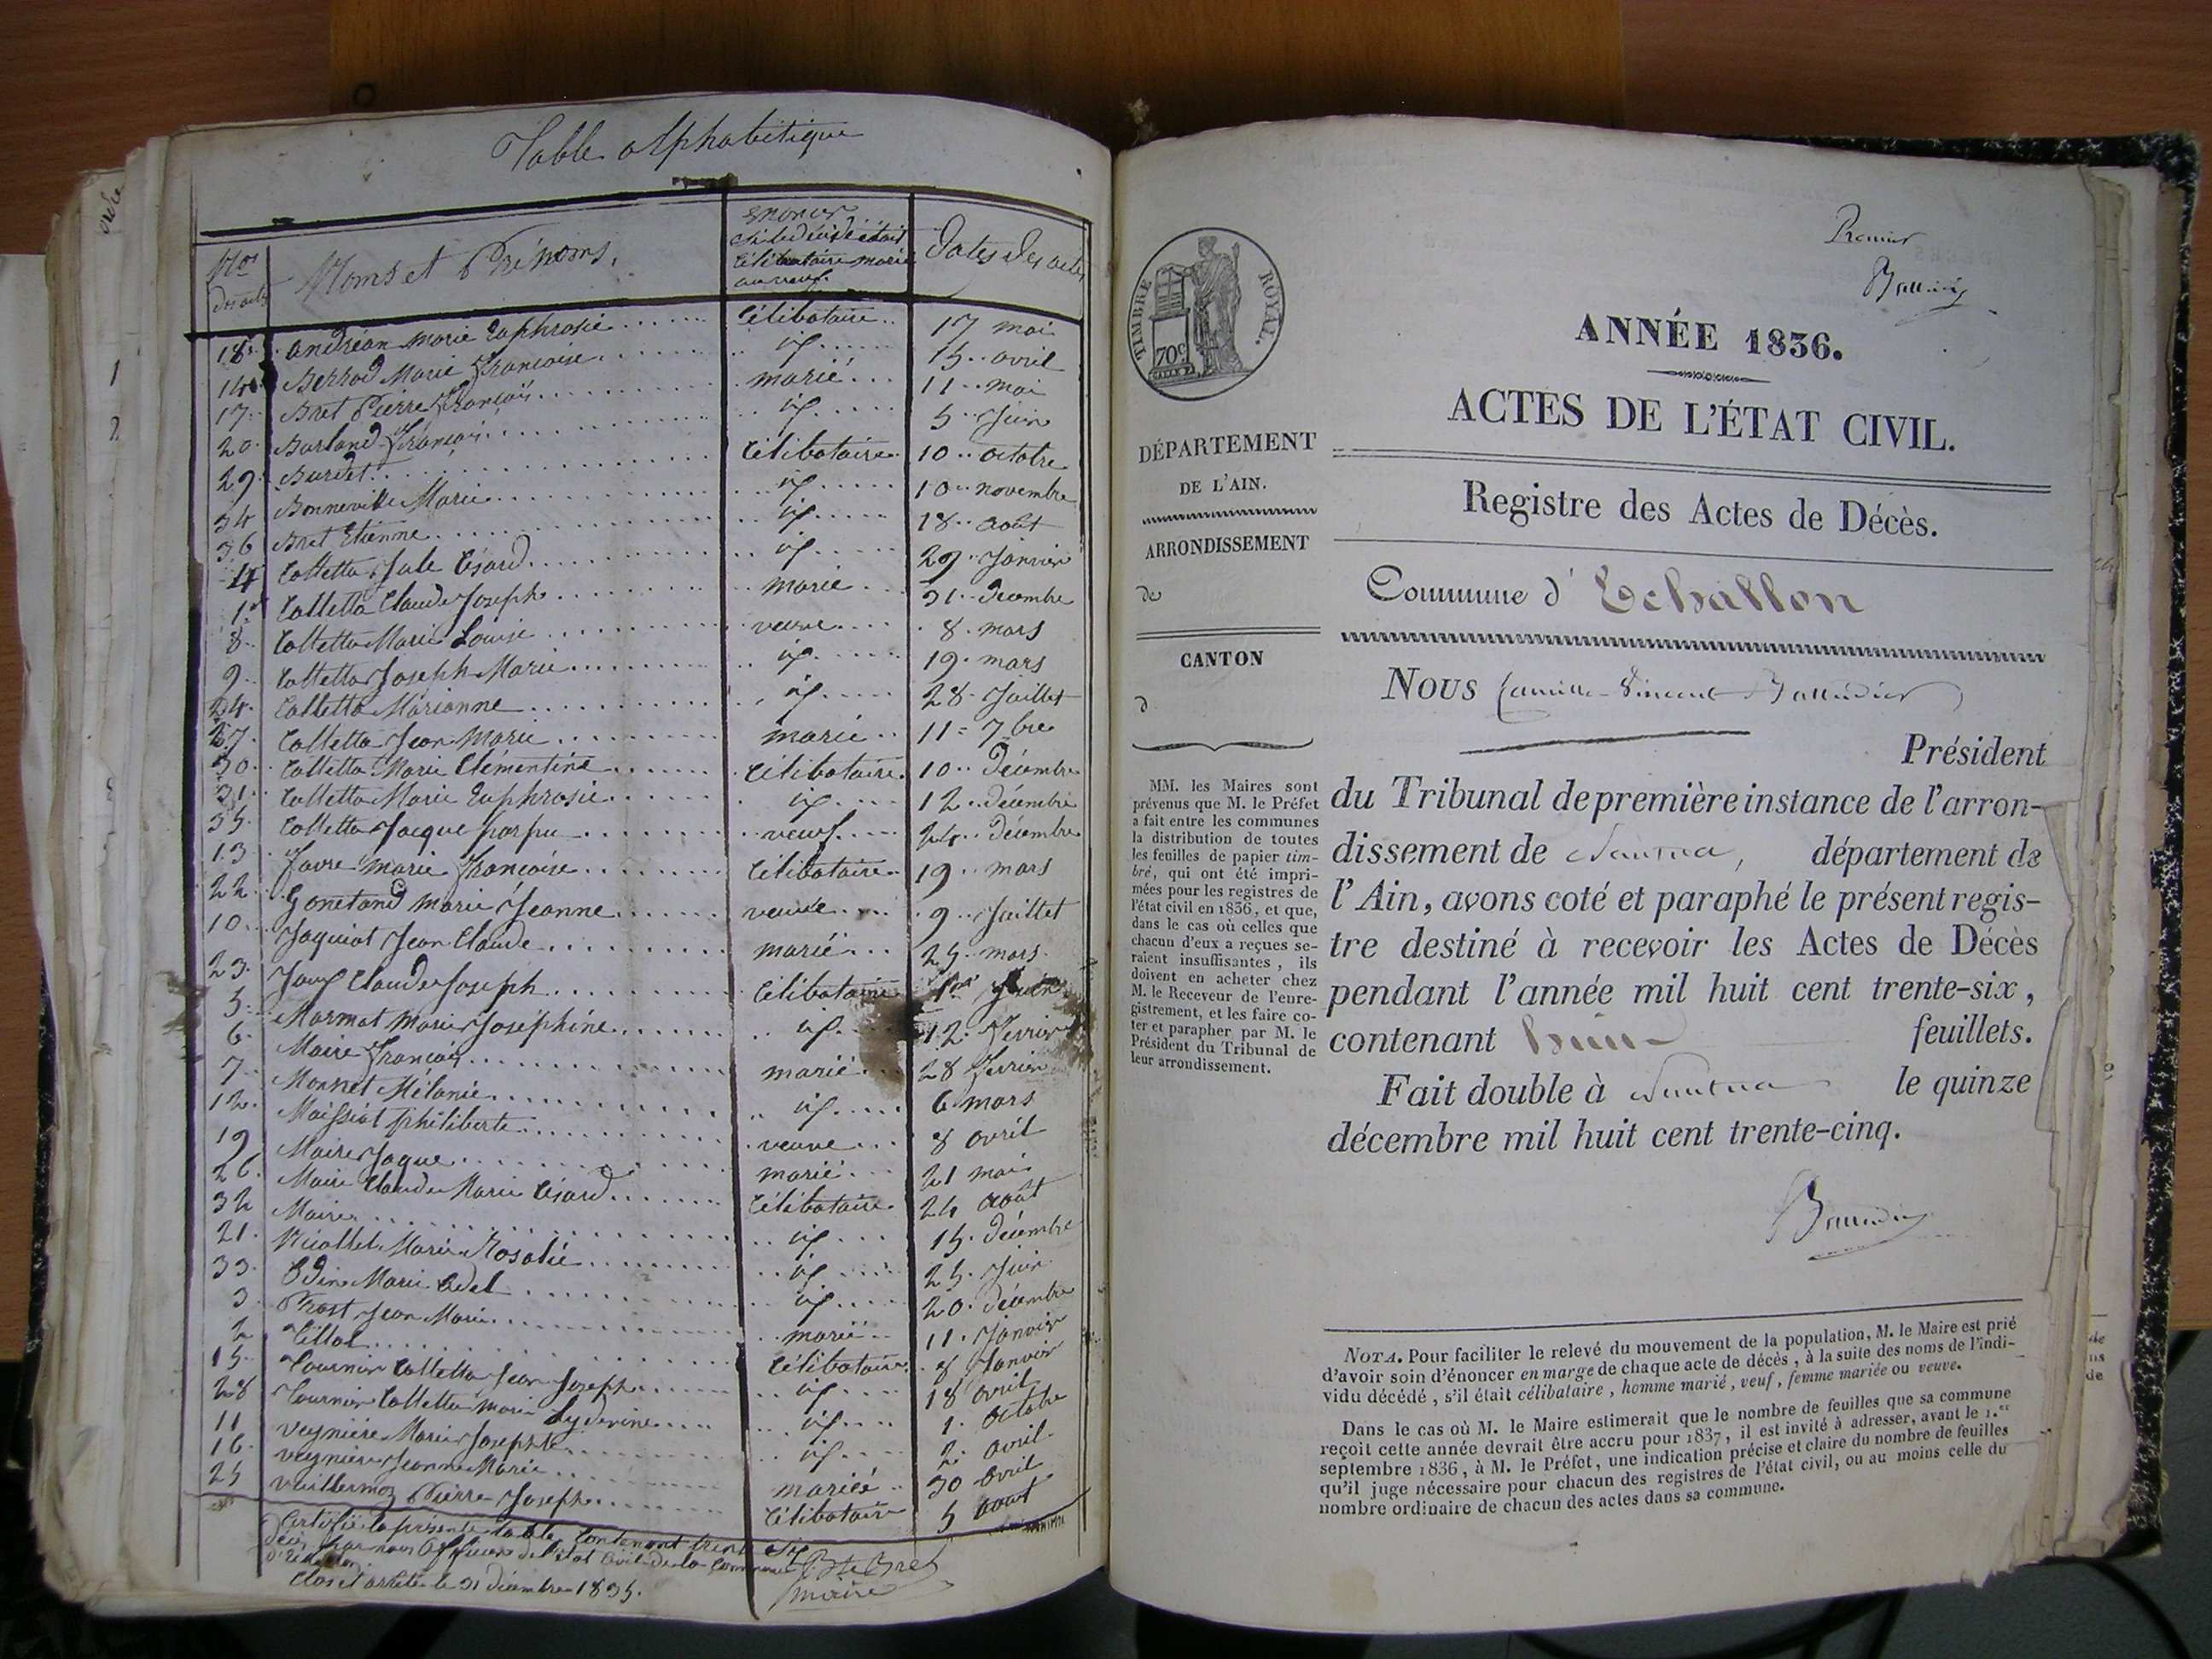 Table alphabétique
Nos des actes
Noms et Prénoms.
énoncer si le décédé était célibataire marié ou veuf.
Dates des actes
18. Andréan Marie Euphrosie célibataire 17 mai
14. Berrod Marie Françoise id 15 avril
17. Bret Pierre François marié 11 mai
20. Burland François id 5 Juin
29. Burdet célibataire 10 octobre
34 Bonneville Marie id 10 novembre
36 Bret Etienne id 18 août
4 Colletta Jule César id 29 Janvier
1er Colletta Claude Joseph marié 31 décembre
8 Colletta Marie Louise veuve 8 mars
9 Colletta Joseph Marie id 19 mars
24 Colletta Marianne id 28 Juillet
27 Colletta Jean Marie marié 11 7bre
30 Colletta Marie Clémentine célibataire 10 Décembre
31 Colletta Marie Euphrosie id 12 décembre
35 Colletta Jacque veuf 24 Décembre
13 Favre Marie Françoise célibataire 19 mars
22 Gonetand Marie Jeanne veuve 9 Juillet
10 Jaquiot Jean Claude marié 25 mars
23 Claude Joseph célibataire
5 Marmat Marie Joséphine id 12 Fevrier
6 Maire François marié 28 Fevrier
7 Monnet Mélanie id 6 mars
12 Maissiat philiberte veuve 8 avril
19 Maire Jaque marié 21 mai
26 Maire Claude Marie César célibataire 24 août
32 Maire id 15 décembre
21 Nicollet Marie Rosalie id 25 Juin
33 Odin Marie Adel id 20 décembre
3 Prost Jean Marie marié 11 Janvier
2 Tillot célibataire 8 Janvier
15 Tournier Colletta Jean Joseph id 18 avril
28 Tournier Colletta Marie id 1 octobre
11 Veyniére Marie Josephte id 2 avril
16 Veyniére Jeanne Marie mariée 30 avril
25 Vuillermoz Pierre Joseph célibataire 5 août
Certifié la présente table contenant trente six
décès par nous officier de l'état civil de la Commune
d'Echallon
Clos et arrêté le 31 décembre 1835.
Bret
maire
Premier
TIMBRE ROYAL.
70c
ANNÉE 1836.
ACTES DE L'ÉTAT CIVIL.
DÉPARTEMENT
DE L'AIN.
ARRONDISSEMENT
de
CANTON
d
Registre des Actes de Décès.
Commune d'Echallon
MM. les Maires sont
prévenus que M. le Préfet
a fait entre les communes
la distribution de toutes
les feuilles de papier tim-
bré, qui ont été impri-
mées pour les registres de
l'état civil en 1836, et que,
dans le cas où celles que
chacun d'eux a reçues se-
raient insuffisantes, ils
doivent en acheter chez
M. le Receveur de l'enre-
gistrement, et les faire co-
ter et parapher par M. le
Président du Tribunal de
leur arrondissement.
NOUS Camille Vincent
Président
du Tribunal de première instance de l'arron-
dissement de Nantua, département de
l'Ain, avons coté et paraphé le présent regis-
tre destiné à recevoir les Actes de Décès
pendant l'année mil huit cent trente-six,
contenant huit feuillets.
Fait double à Nantua le quinze
décembre mil huit cent trente-cinq.
NOTA. Pour faciliter le relevé du mouvement de la population, M. le Maire est prié
d'avoir soin d'énoncer en marge de chaque acte de décès, à la suite des noms de l'indi-
vidu décédé, s'il était célibataire, homme marié, veuf, femme mariée ou veuve.
Dans le cas où M. le Maire estimerait que le nombre de feuilles que sa commune
reçoit cette année devrait être accru pour 1837, il est invité à adresser, avant le 1.er
septembre 1836, à M. le Préfet, une indication précise et claire du nombre de feuilles
qu'il juge nécessaire pour chacun des registres de l'état civil, ou au moins celle du
nombre ordinaire de chacun des actes dans sa commune.